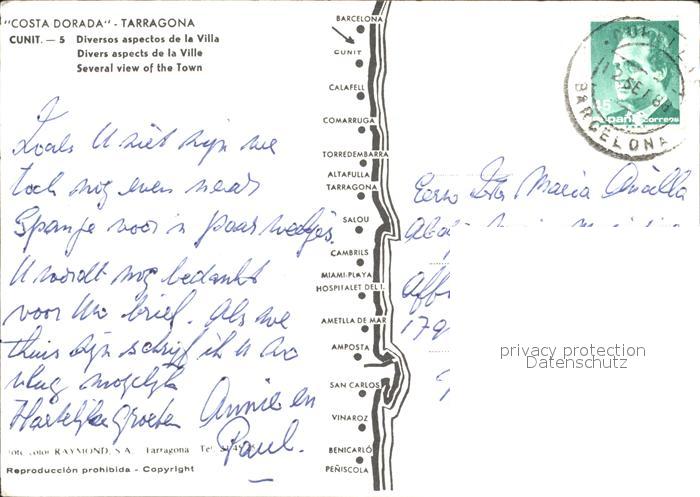 "COSTA DORADA" - TARRAGONA
CUNIT. — 5 Diversos aspectos de la Villa
Divers aspects de la Ville
Several view of the Town
Zoals U ziet zijn we
toch nog even naar
Spanje voor 'n paar weekjes.
U wordt nog bedankt
voor Uw brief. Als we
thuis zijn schrijf ik u zo
vlug mogelijk
Hartelijke groeten Annie en
Paul.
RAYMOND, S.A. Tarragona
Reproducción prohibida - Copyright
BARCELONA
CUNIT
CALAFELL
COMARRUGA
TORREDEMBARRA
ALTAFULLA
TARRAGONA
SALOU
CAMBRILS
MIAMI-PLAYA
HOSPITALET DEL I.
AMETLLA DE MAR
AMPOSTA
SAN CARLOS
VINAROZ
BENICARLÓ
PEÑISCOLA
SET
BARCELONA
España correos
Maria
privacy protection
Datenschutz